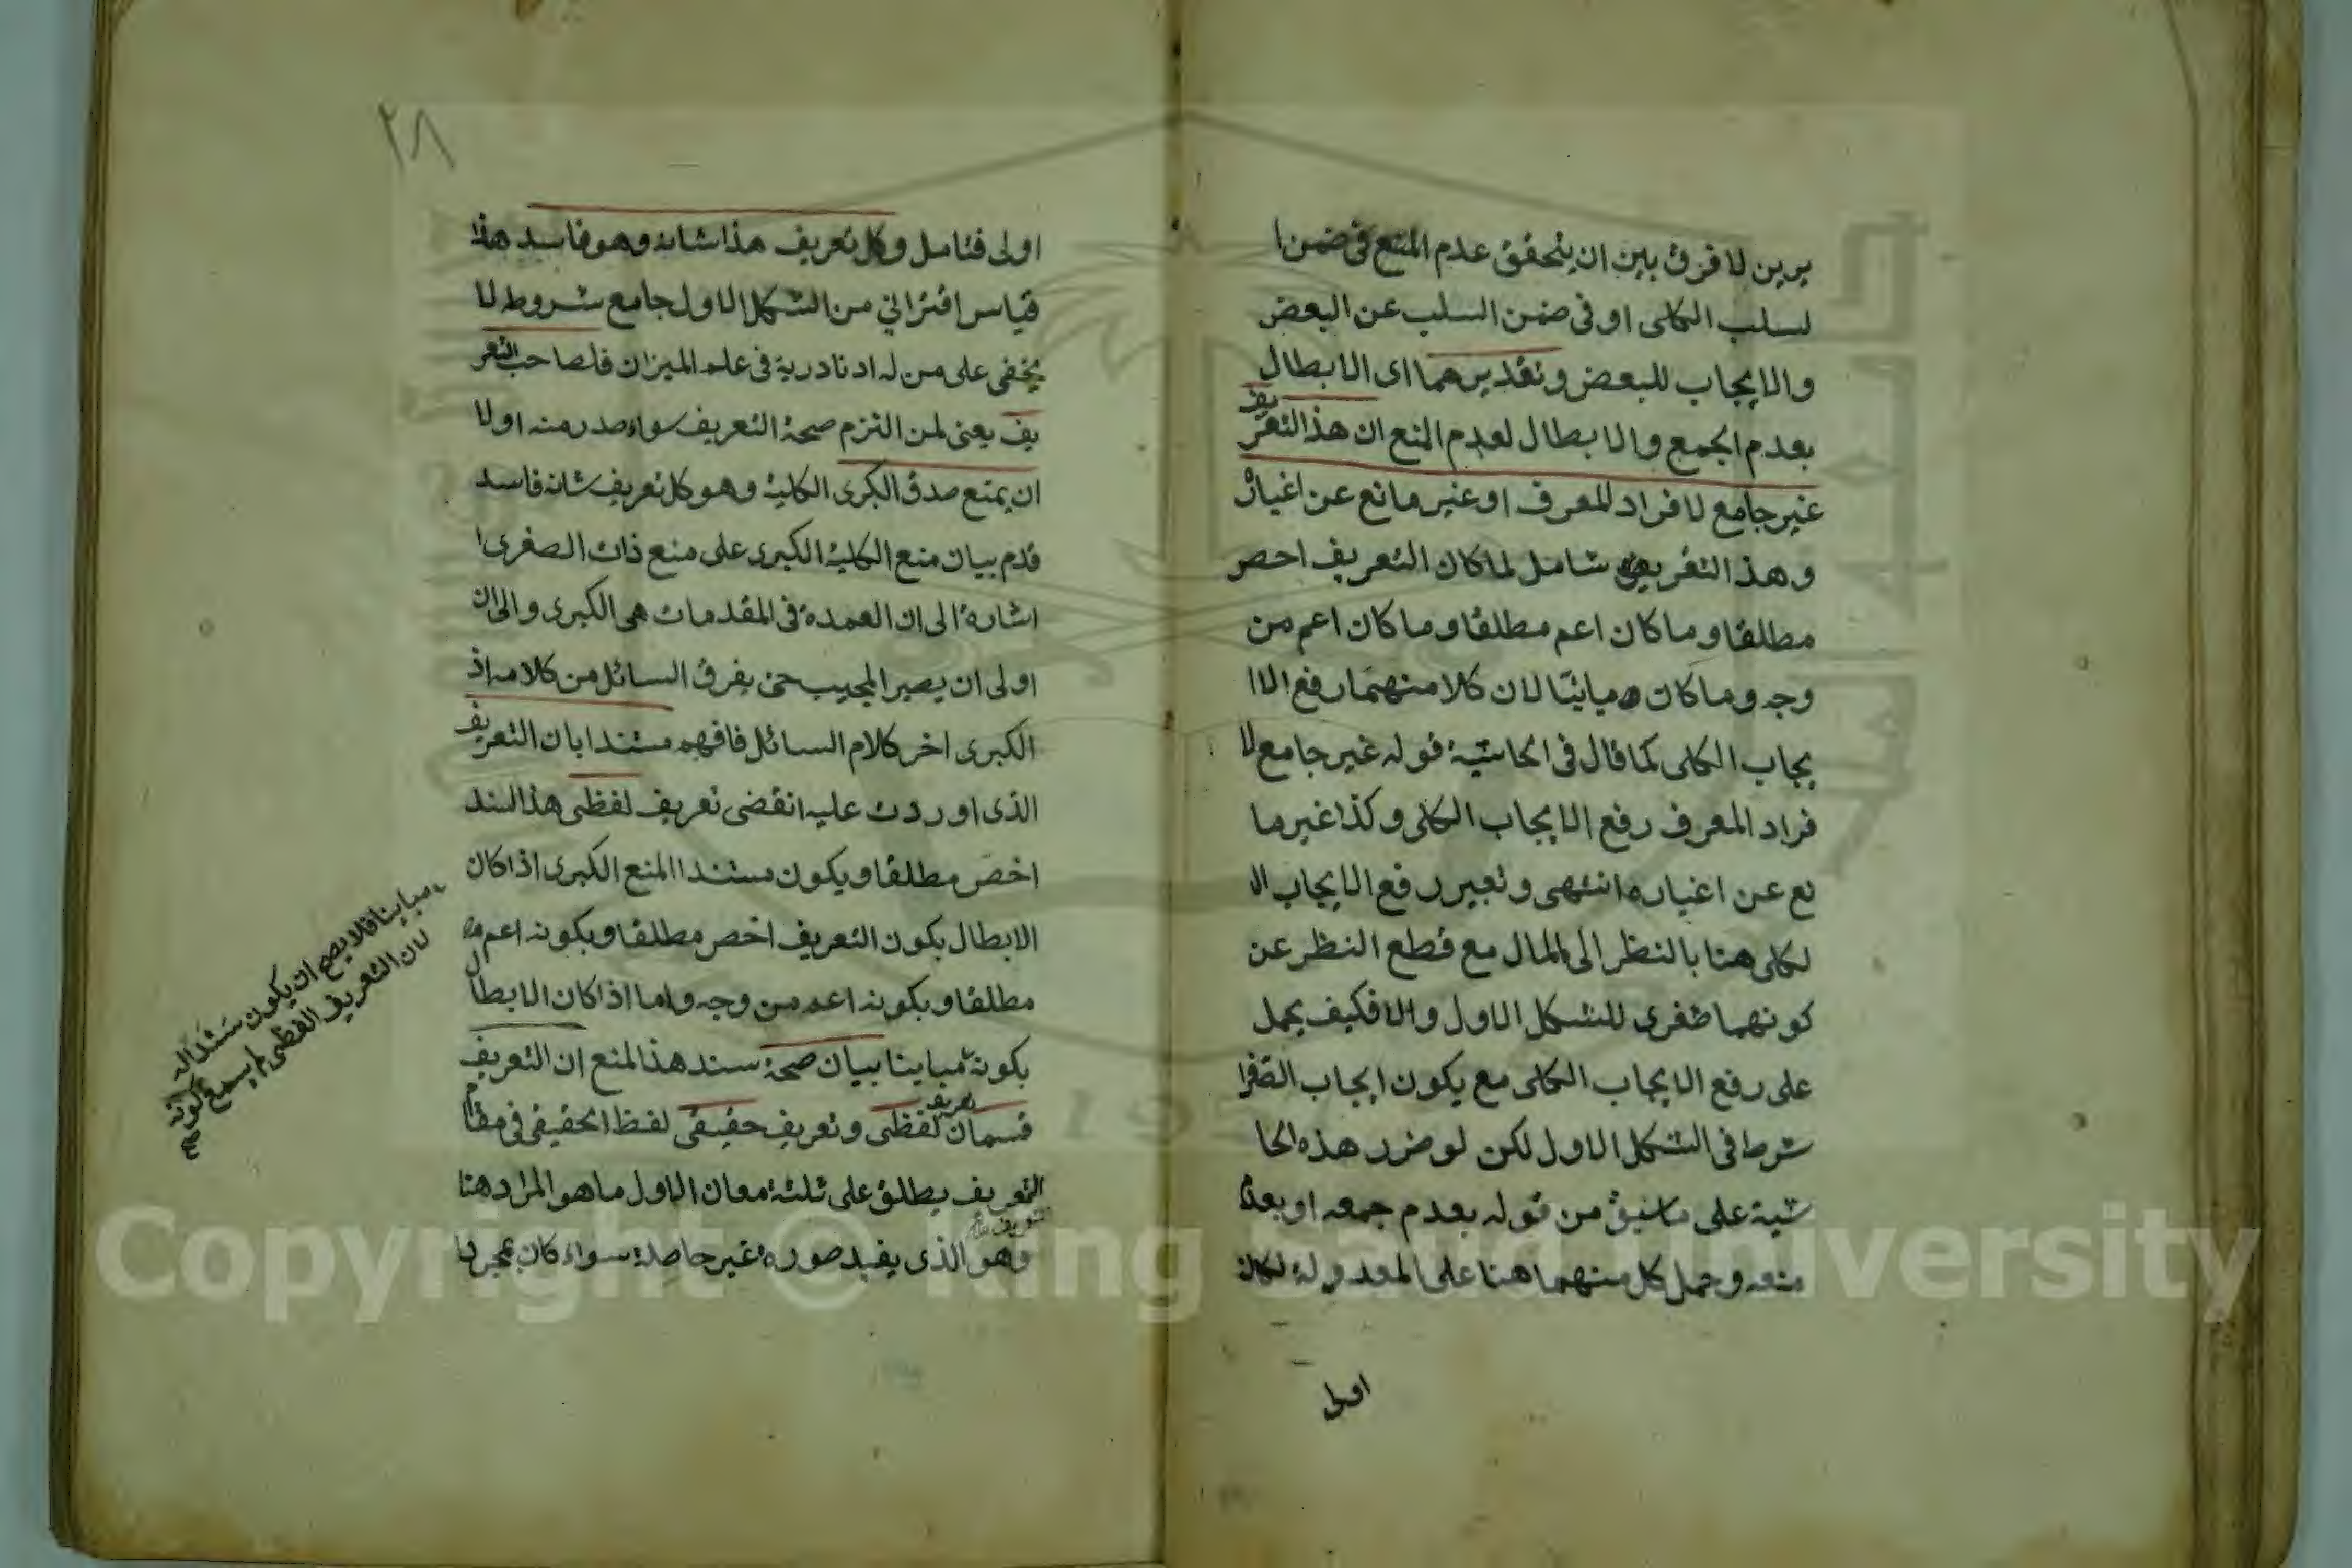 يرين لا فرق بين ان يتحقق عدم المنع فى ضمن ا
لسلب الكلى او فى ضمن السلب عن البعض
والايجاب للبعض وتقديرهما اى الابطال
بعدم الجمع والابطال لعدم المنع ان هذ التعريف
غير جامع لافراد المعرف او غير مانع عن اغياره
وهذ التعريف شامل لما كان التعريف اخص
مطلقا وما كان اعم مطلقا وما كان اعم من
وجه وما كان مباينا لان كلا منهما رفع الا
يجاب الكلى كما قال فى الحاشية قوله غير جامع لا
فراد المعرف رفع الايجاب الكلى وكذا غير ما
نع عن اغياره انتهى وتعبير رفع الايجاب ا
لكلى هنا بالنظر الى المال مع قطع النظر عن
كونهما صغرى للشكل الاول والا فكيف يحمل
على رفع الايجاب الكلى مع يكون ايجاب الصغرا
شرط فى الشكل الاول لكن لو ضرر هذه الحا
شية على ما سبق من قوله بعدم جمعه او بعدم
منعه وحمل كل منهما هنا على المعدولة لكان
اولى
٢٨
اولى فتامل وكل تعريف هذا شانه وهو فاسد هذا
قياس اقترانى من الشكل الاول جامع شروط لا
يخفى على من له ادنا درية فى علم الميزان فلصاحب التعر
يف يعنى لمن التزم صحة التعريف سواء صدر منه اولا
ان يمنع صدق الكبرى الكلية وهو كل تعريف شانه فاسد
قدم بيان منع الكلية الكبرى على منع ذات الصغرى ا
اشارة الى ان العمدة فى المقدمات هى الكبرى والى ان
اولى ان يصير المجيب حتى يفرق السائل من كلامه اذ
الكبرى اخر كلام السائل فافهم مستندا بان التعريف
الذى اوردت عليه انقضى تعريف لفظى هذ السند
اخص مطلقا ويكون مستندا المنع الكبرى اذا كان
الابطال بكون التعريف اخص مطلقا وبكونه اعم
مطلقا وبكونه اعم من وجه واما اذا كان الابطال
بكونه مباينا بيان صحة سند هذ المنع ان التعريف
قسمان تعريف لفظى وتعريف حقيقى لفظ الحقيقى فى مقام
التعريف يطلق على ثلثة معان الاول ما هو المراد هنا
وهو الذى يفيد صورة غير حاصلة سواء كان بمجرد ا
مباينا فلا يصح ان يكون سندا له
لان التعريف الفظى لم يسمع كونه
Copyright © King Saud University
1957